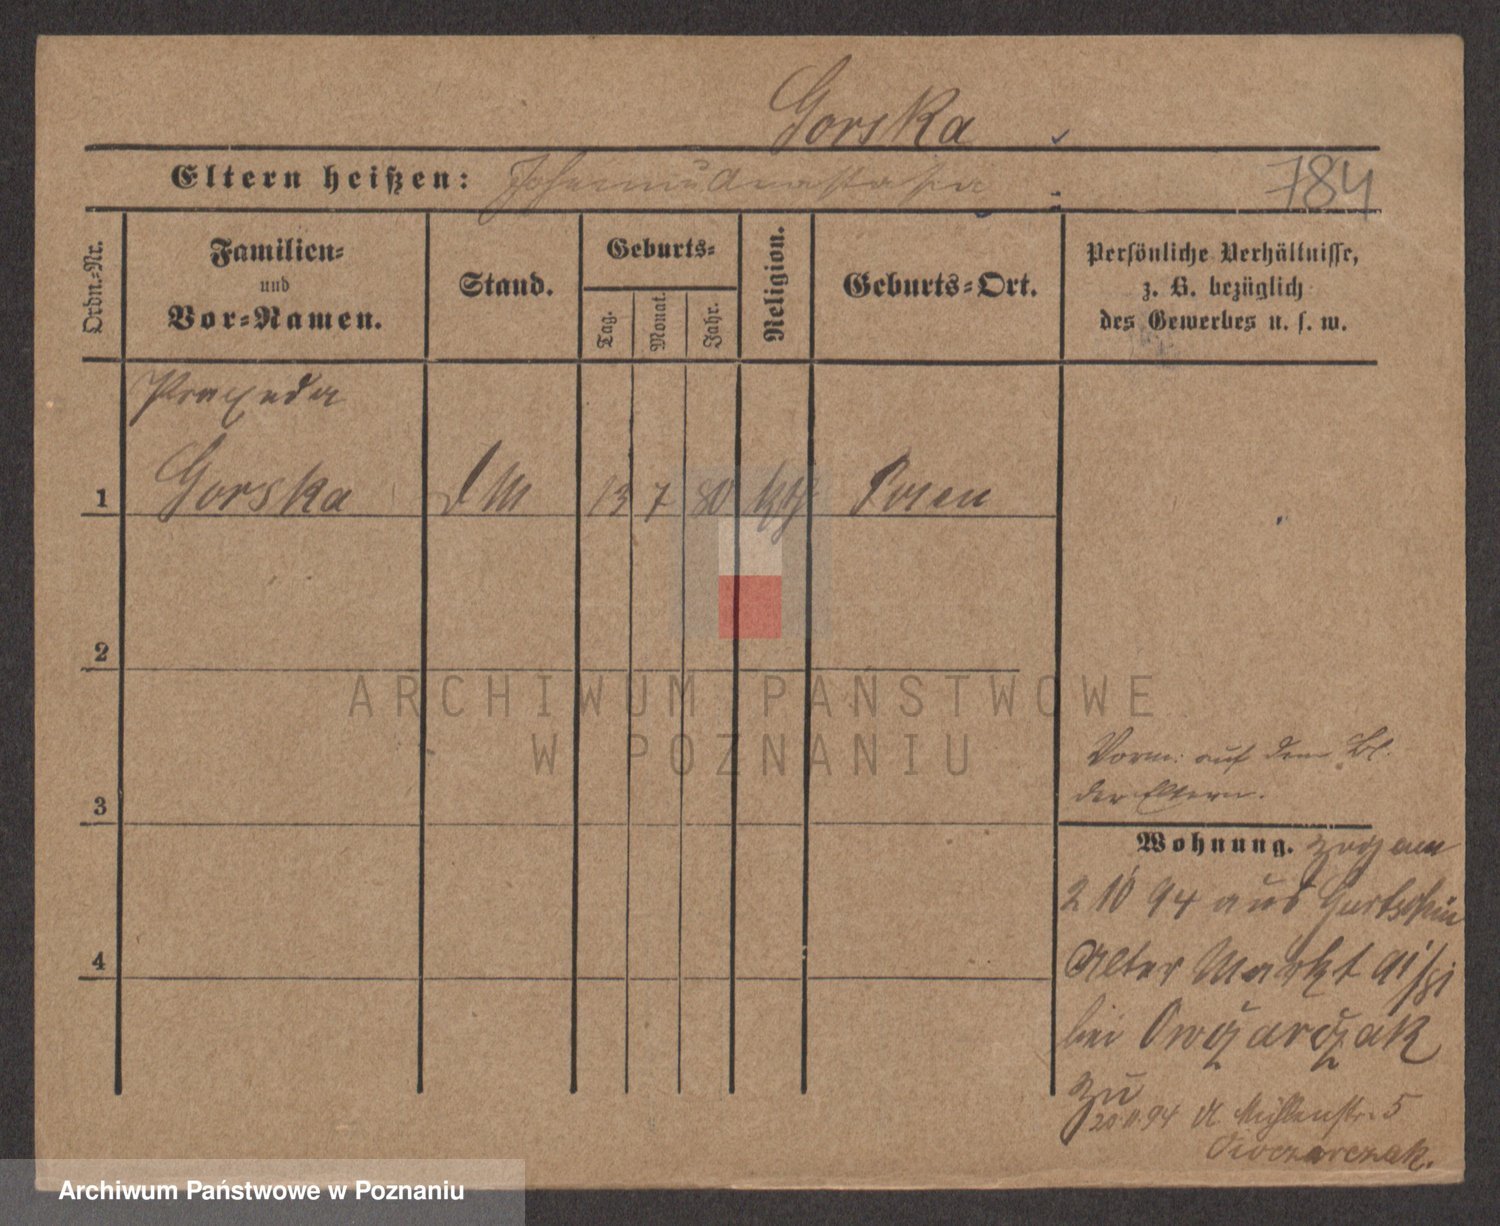 Gorska
Eltern heißen: Johann u Anastasia
784
Ordn.-Nr.
Familien-
und
Vor-Namen.
Stand.
Geburts-
Tag.
Monat.
Jahr.
Religion.
Geburts-Ort.
Persönliche Verhältnisse,
z. B. bezüglich
des Gewerbes u. s. w.
Praxeda
1 Gorska d M 13 7 80 kth Posen
2
ARCHIWUM PAŃSTWOWE
W POZNANIU
3
4
Vorm: auf dem Bl.
der Eltern.
Wohnung. zog am
2 10 94 aus
Alter Markt 91
bei Owczarczak
zu
20.11.94 Kl Mühlenstr. 5
Owczarczak.
Archiwum Państwowe w Poznaniu